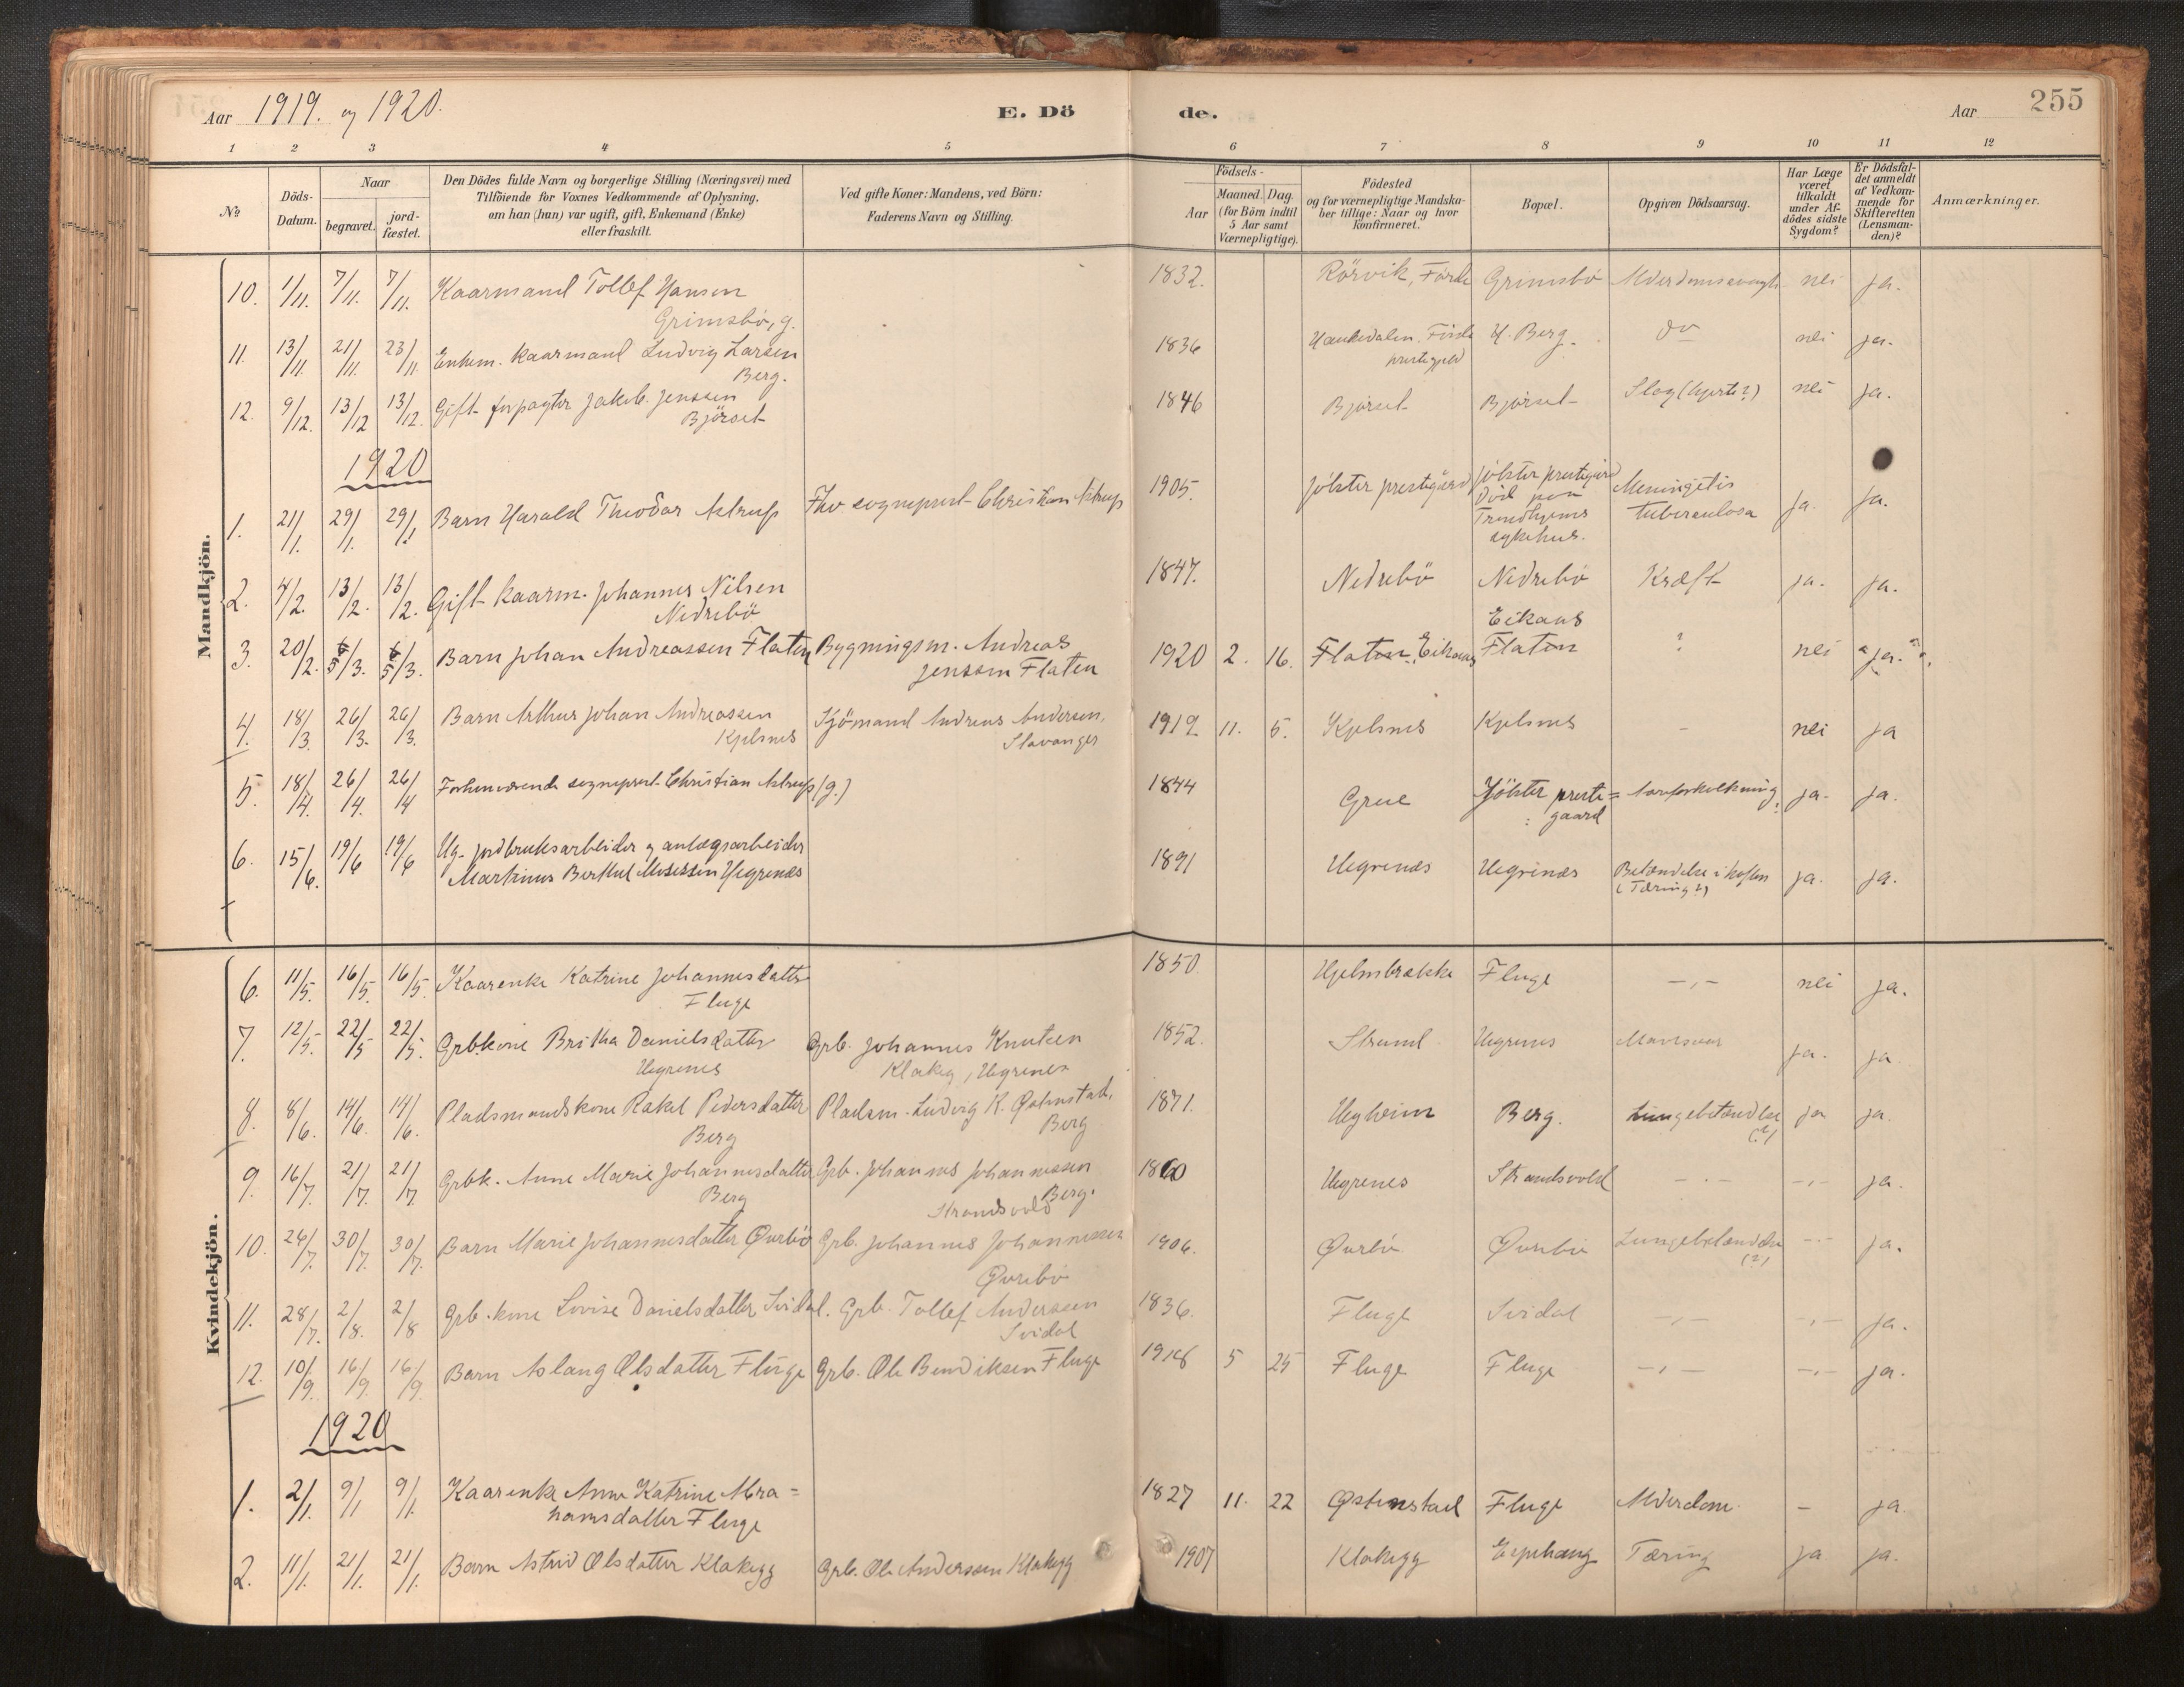 Aar 1919. og 1920.
E. Döde.
Aar
255
1 2 3 4 5 6 7 8 9 10 11 12
No
Döds-Datum.
Naar
begravet.
jord-fæstet.
Den Dödes fulde Navn og borgerlige Stilling (Næringsvei) med
Tilföiende for Voxnes Vedkommende af Oplysning,
om han (hun) var ugift, gift, Enkemand (Enke)
eller fraskilt.
Ved gifte Koner: Mandens, ved Börn:
Faderens Navn og Stilling.
Födsels-
Aar
Maaned. Dag.
(for Börn indtil
5 Aar samt
Værnepligtige).
Födested
og for værnepligtige Mandska-
ber tillige: Naar og hvor
konfirmeret.
Bopæl.
Opgiven Dödsaarsag.
Har Læge
været
tilkaldt
under Af-
dödes sidste
Sygdom?
Er Dödsfal-
det anmeldt
af Vedkom-
mende for
Skifteretten
(Lensman-
den)?
Anmærkninger.
Mandkjön.
10. 1/11. 7/11. 7/11. Kaarmand Tollef Hansen 1832. Rörvik, Förde Grimsbö nei ja.
Grimsbö, g.
11. 13/11. 21/11. 23/11. Enkem. Kaarmand Ludvig Larsen 1836 Haukedalen. Förde H. Berg. do nei ja.
Berg. prestegjeld
12. 9/12. 13/12 13/12. Gift forpagter Jakob Jenssen 1846 Björset Björset Slag (hjerte?) nei ja.
Björset
1920
1. 21/1. 29/1. 29/1. Barn Harald Theodor Astrup Fhv. sogneprest Christian Astrup 1905. Jölster prestegård Jölster prestegård Meningitis ja. ja.
Död paa tuberculosa
Trondhjems
sykehus.
2. 4/2. 13/2. 13/2. Gift kaarm. Johannes Nilsen 1847. Nedrebö Nedrebö Kræft ja. ja.
Nedrebö
Eikaas
3. 20/2. 5/3. 5/3. Barn Johan Andreassen Flaten Bygningsm. Andreas 1920 2. 16. Flaten, Eikaas Flaten ? nei ja.
Jenssen Flaten
4. 18/3. 26/3. 26/3. Barn Arthur Johan Andreassen Sjömand Andreas Andersen, 1919. 11. 5. Kjelsnes Kjelsnes - nei ja
Kjelsnes Stavanger
5. 18/4. 26/4. 26/4 Forhenværende sogneprest Christian Astrup (g.) 1844 Grue Jölster preste= Aareforkalkning. ja. ja.
gaard
6. 15/6. 19/6 19/6 Ug. jordbruksarbeider og anlægsarbeider 1891 Hegrenæs Hegrenæs Betændelse i hoften ja. ja.
Martinus Berthel Mosessen Hegrenæs (Tæring?)
Kvindekjön.
6. 11/5. 16/5. 16/5. Kaarenke Katrine Johannesdatter 1850 Hjelmbrække Fluge -,- nei ja.
Fluge
7. 12/5. 22/5 22/5. Grbkone Britha Danielsdatter Grb. Johannes Knutsen 1852. Strand Hegrenes ja. ja
Hegrenes Klakeg, Hegrenes
8. 8/6. 14/6. 14/6. Pladsmandskone Rakel Pedersdatter Pladsm. Ludvig R. Østenstad, 1871. Hegheim Berg. Lungebetændelse ja ja.
Berg Berg (?)
9. 16/7. 21/7. 21/7. Grbk. Anne Marie Johannesdatter Grb. Johannes Johannessen 1860 Hegrenes Strandsvold -.- -,- ja.
Berg Berg.
Strandsvold
10. 26/7. 30/7. 30/7. Barn Marie Johannesdatter Øvrebö Grb. Johannes Johannessen 1906. Øvrebö Øvrebö Lungebetændelse -.- ja.
Øvrebö (?)
11. 28/7. 2/8. 2/8 Grb.kone Lovise Danielsdatter Svidal. Grb. Tollef Anderssen 1836. Fluge Svidal -,- -,- ja.
Svidal
12. 10/9. 16/9. 16/9. Barn Aslaug Olsdatter Fluge Grb. Ole Bendiksen Fluge 1918 5 25 Fluge Fluge -,- -,- ja.
1920
1. 2/1. 9/1 9/1. Kaarenke Anne Katrine Abra= 1827 11. 22 Østenstad Fluge Alderdom - ja.
hamsdatter Fluge
2. 11/1. 21/1. 21/1. Barn Astrid Olsdatter Klakegg Grb. Ole Anderssen Klakegg 1907 Klakegg Tæring ja ja.